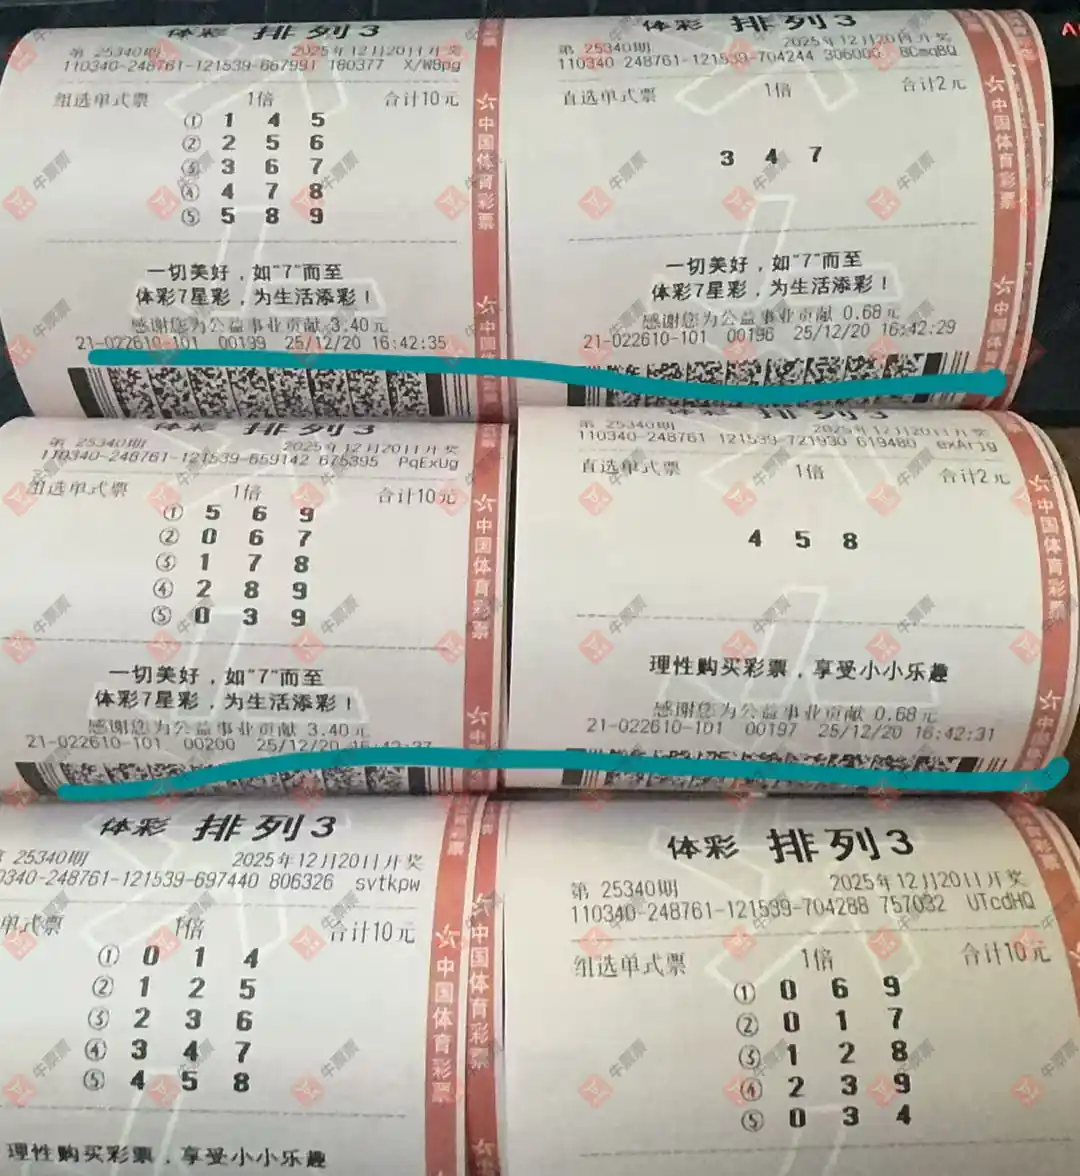 体彩 排列3
第 25340期 2025年12月20日开奖
110340-248761-121539-667991 180377 X/W8pg
组选单式票 1倍 合计10元
① 1 4 5
② 2 5 6
③ 3 6 7
④ 4 7 8
⑤ 5 8 9
一切美好，如"7"而至
体彩7星彩，为生活添彩！
感谢您为公益事业贡献 3.40元
21-022610-101 00199 25/12/20 16:42:35
中国体育彩票
体彩 排列3
第 25340期 2025年12月20日开奖
110340 248761-121539-704244 306000 BCmqBQ
直选单式票 1倍 合计2元
3 4 7
一切美好，如"7"而至
体彩7星彩，为生活添彩！
感谢您为公益事业贡献 0.68元
21-022610-101 00196 25/12/20 16:42:29
中国体育彩票
体彩 排列3
第 25340期 2025年12月20日开奖
110340-248761-121539-659142 675395 PqExUg
组选单式票 1倍 合计10元
① 5 6 9
② 0 6 7
③ 1 7 8
④ 2 8 9
⑤ 0 3 9
一切美好，如"7"而至
体彩7星彩，为生活添彩！
感谢您为公益事业贡献 3.40元
21-022610-101 00200 25/12/20
中国体育彩票
体彩 排列3
第 25340期 2025年12月20日开奖
110340-248761 121539-721930 619480 exArjg
直选单式票 1倍 合计2元
4 5 8
理性购买彩票，享受小小乐趣
感谢您为公益事业贡献 0.68元
21-022610-101 00197 25/12/20 16:42:31
中国体育彩票
体彩 排列3
25340期 2025年12月20日开奖
0340-248761-121539-697440 806326 svtkpw
单式票 1倍 合计10元
① 0 1 4
② 1 2 5
③ 2 3 6
④ 3 4 7
⑤ 4 5 8
理性购买彩票，享受小小乐趣
中国体育彩票
中国体育彩票
体彩 排列3
第 25340期 2025年12月20日开奖
110340-248761-121539-704288 757032 UTcdHQ
组选单式票 1倍 合计10元
① 0 6 9
② 0 1 7
③ 1 2 8
④ 2 3 9
⑤ 0 3 4
牛票票